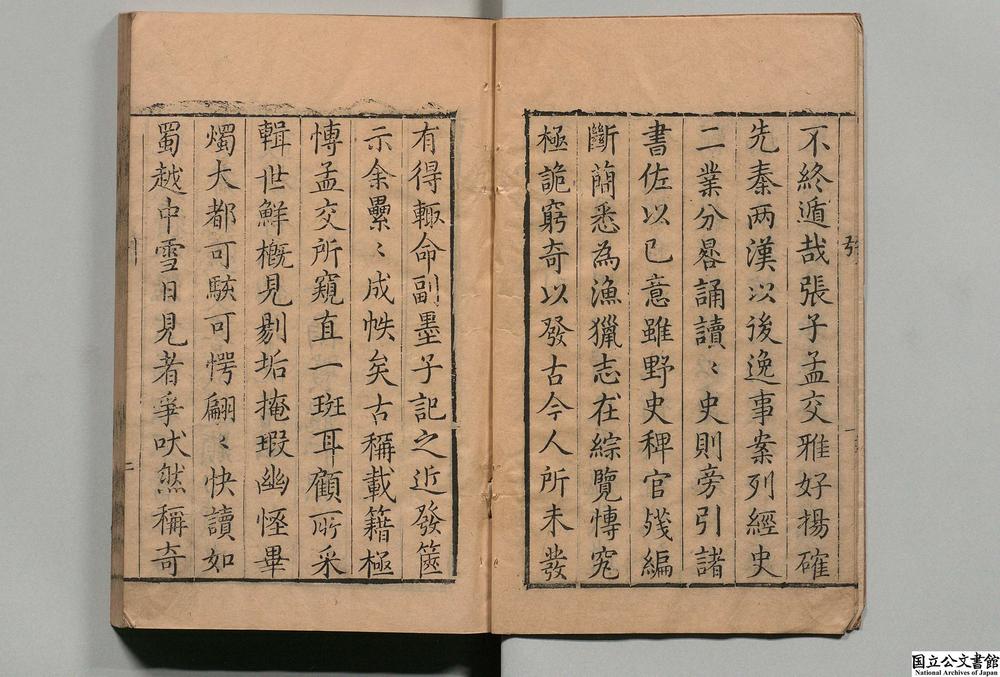 不終遁哉張子孟交雅好揚確
先秦两漢以後逸事案列經史
二業分晷誦讀〻史則旁引諸
書佐以已意雖野史稗官殘編
斷蕳悉為漁獵志在綜覽慱究
極詭窮奇以發古今人所未發
有得輙命副墨子記之近發篋
示余纍〻成帙矣古稱載籍極
慱孟交所窺直一斑耳顧所采
輯世鮮概見剔垢掩瑕幽恠畢
燭大都可駭可愕翩〻快讀如
蜀越中雪日見者爭吠然稱奇
二
国立公文書館
National Archives of Japan